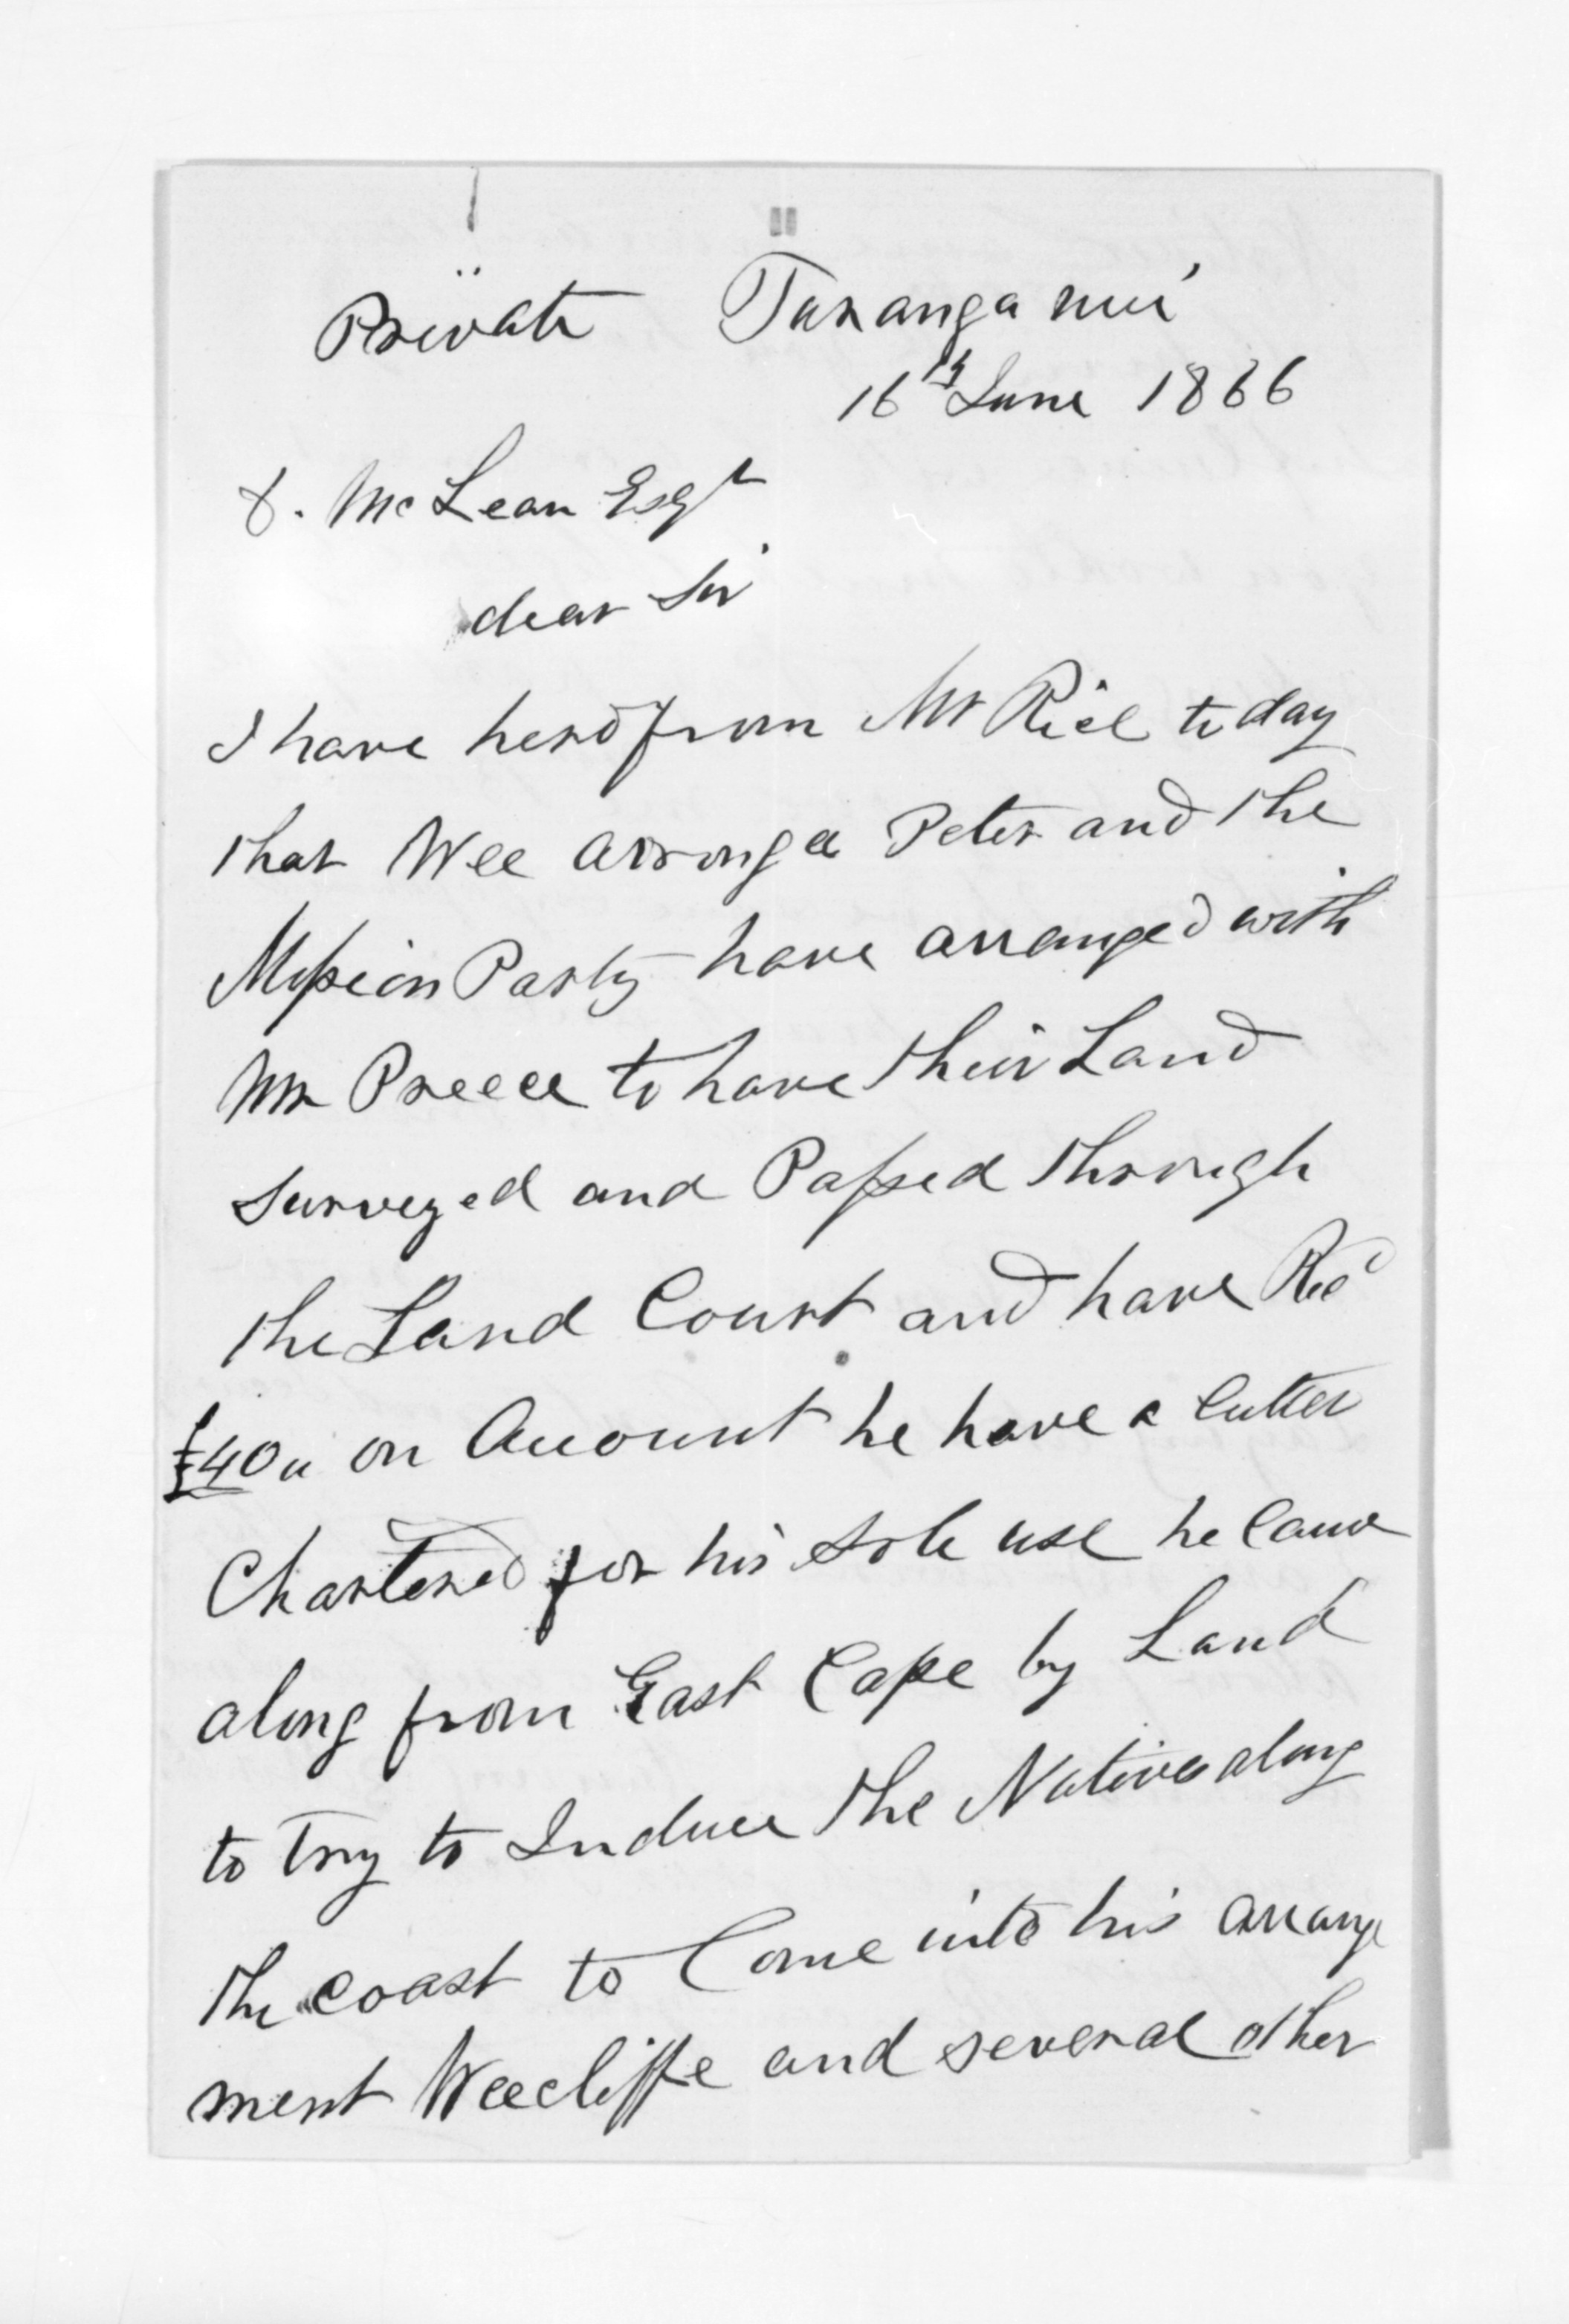 Private Turanga nui
16th June 1866
D. McLean Esqr
dear Sir
I have herd from Mr Rice to day
that Wee arronga Peter and the
Mission Party have arranged with
Mr Preece to have their Land
surveyed and Passed through
the Land Court and have Recd
£40 " on Account he have a Cutter
Chartered for his sole use he Came
along from East Cape by Land
to Try to Induce the Natives along
the coast to Come into his arrange
ment Weecliffe and several other